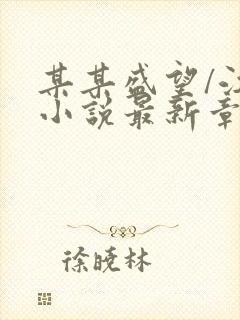 某某盛望/江
小说最新章
徐晓林